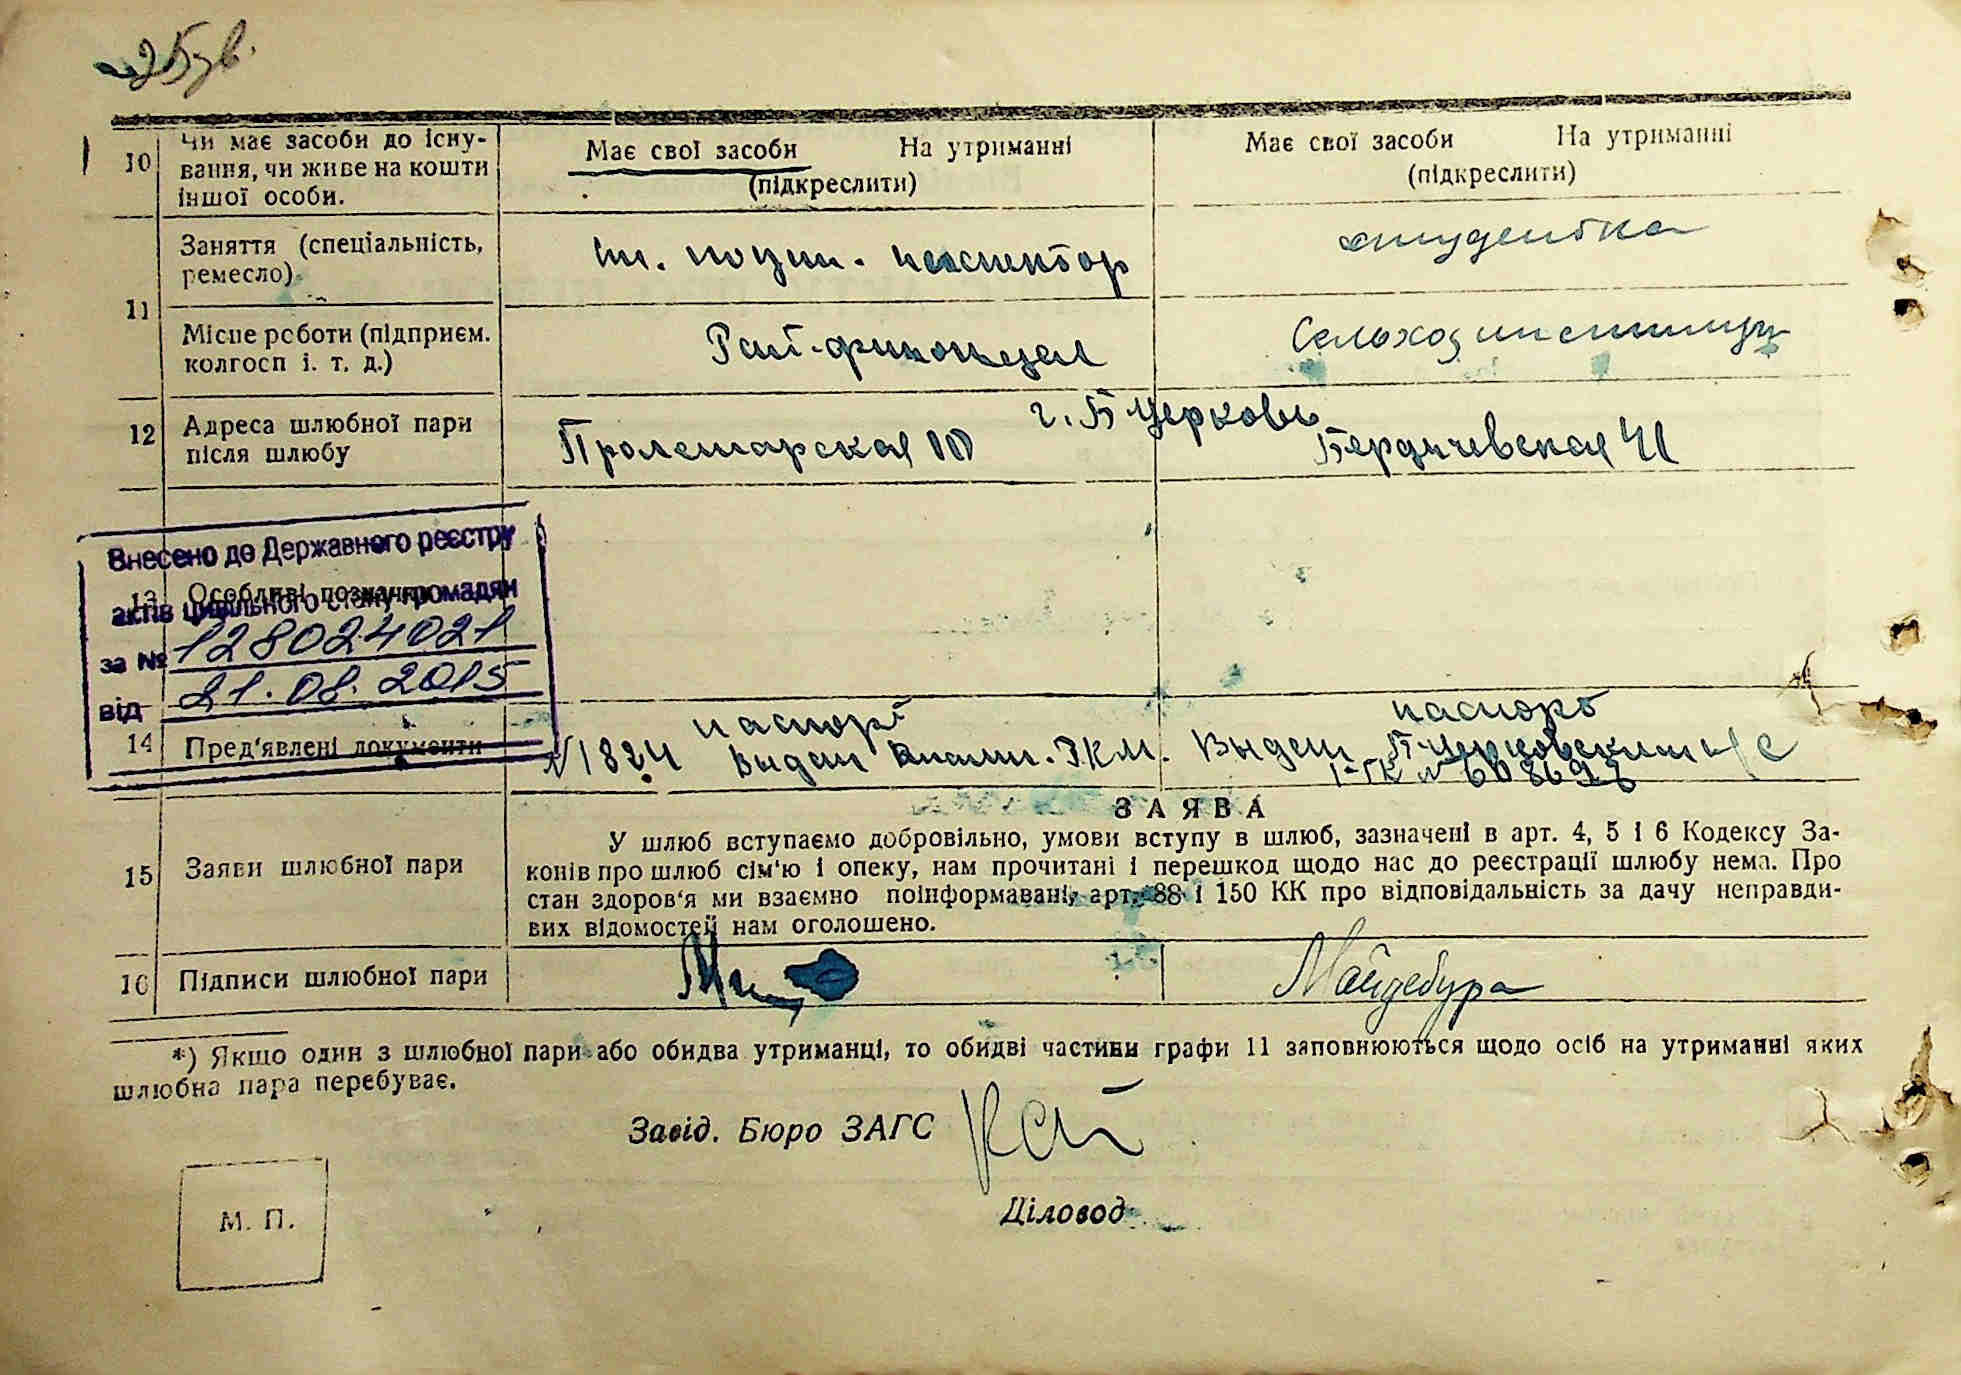 10 Чи має засоби до існу-
вання, чи живе на кошти
іншої особи.
Має свої засоби На утриманні
(підкреслити)
Має свої засоби На утриманні
(підкреслити)
11 Заняття (спеціальність,
ремесло)
инспектор
студентка
Місце роботи (підприєм.
колгосп і. т. д.)
Рай-финотдел
Сельхоз институт
12 Адреса шлюбної пари
після шлюбу
г. Б Церковь
Пролетарская 10
Бердичевская 41
Внесено до Державного реєстру
актів цивільного стану громадян
за № 128024021
від 21.08.2015
13 Особливі позначки
14 Пред'явлені документи
паспорт
№ 1824 Выдан
паспорт
Выдан Б-Церковским
№ 608696
15 Заяви шлюбної пари
ЗАЯВА
У шлюб вступаємо добровільно, умови вступу в шлюб, зазначені в арт. 4, 5 і 6 Кодексу За-
конів про шлюб сім'ю і опеку, нам прочитані і перешкод щодо нас до реєстрації шлюбу нема. Про
стан здоров'я ми взаємно поінформавані, арт. 88 і 150 КК про відповідальність за дачу неправди-
вих відомостей нам оголошено.
16 Підписи шлюбної пари
Майдебура
*) Якщо один з шлюбної пари або обидва утриманці, то обидві частини графи 11 заповнюються щодо осіб на утриманні яких
шлюбна пара перебуває.
Завід. Бюро ЗАГС
Діловод
М. П.